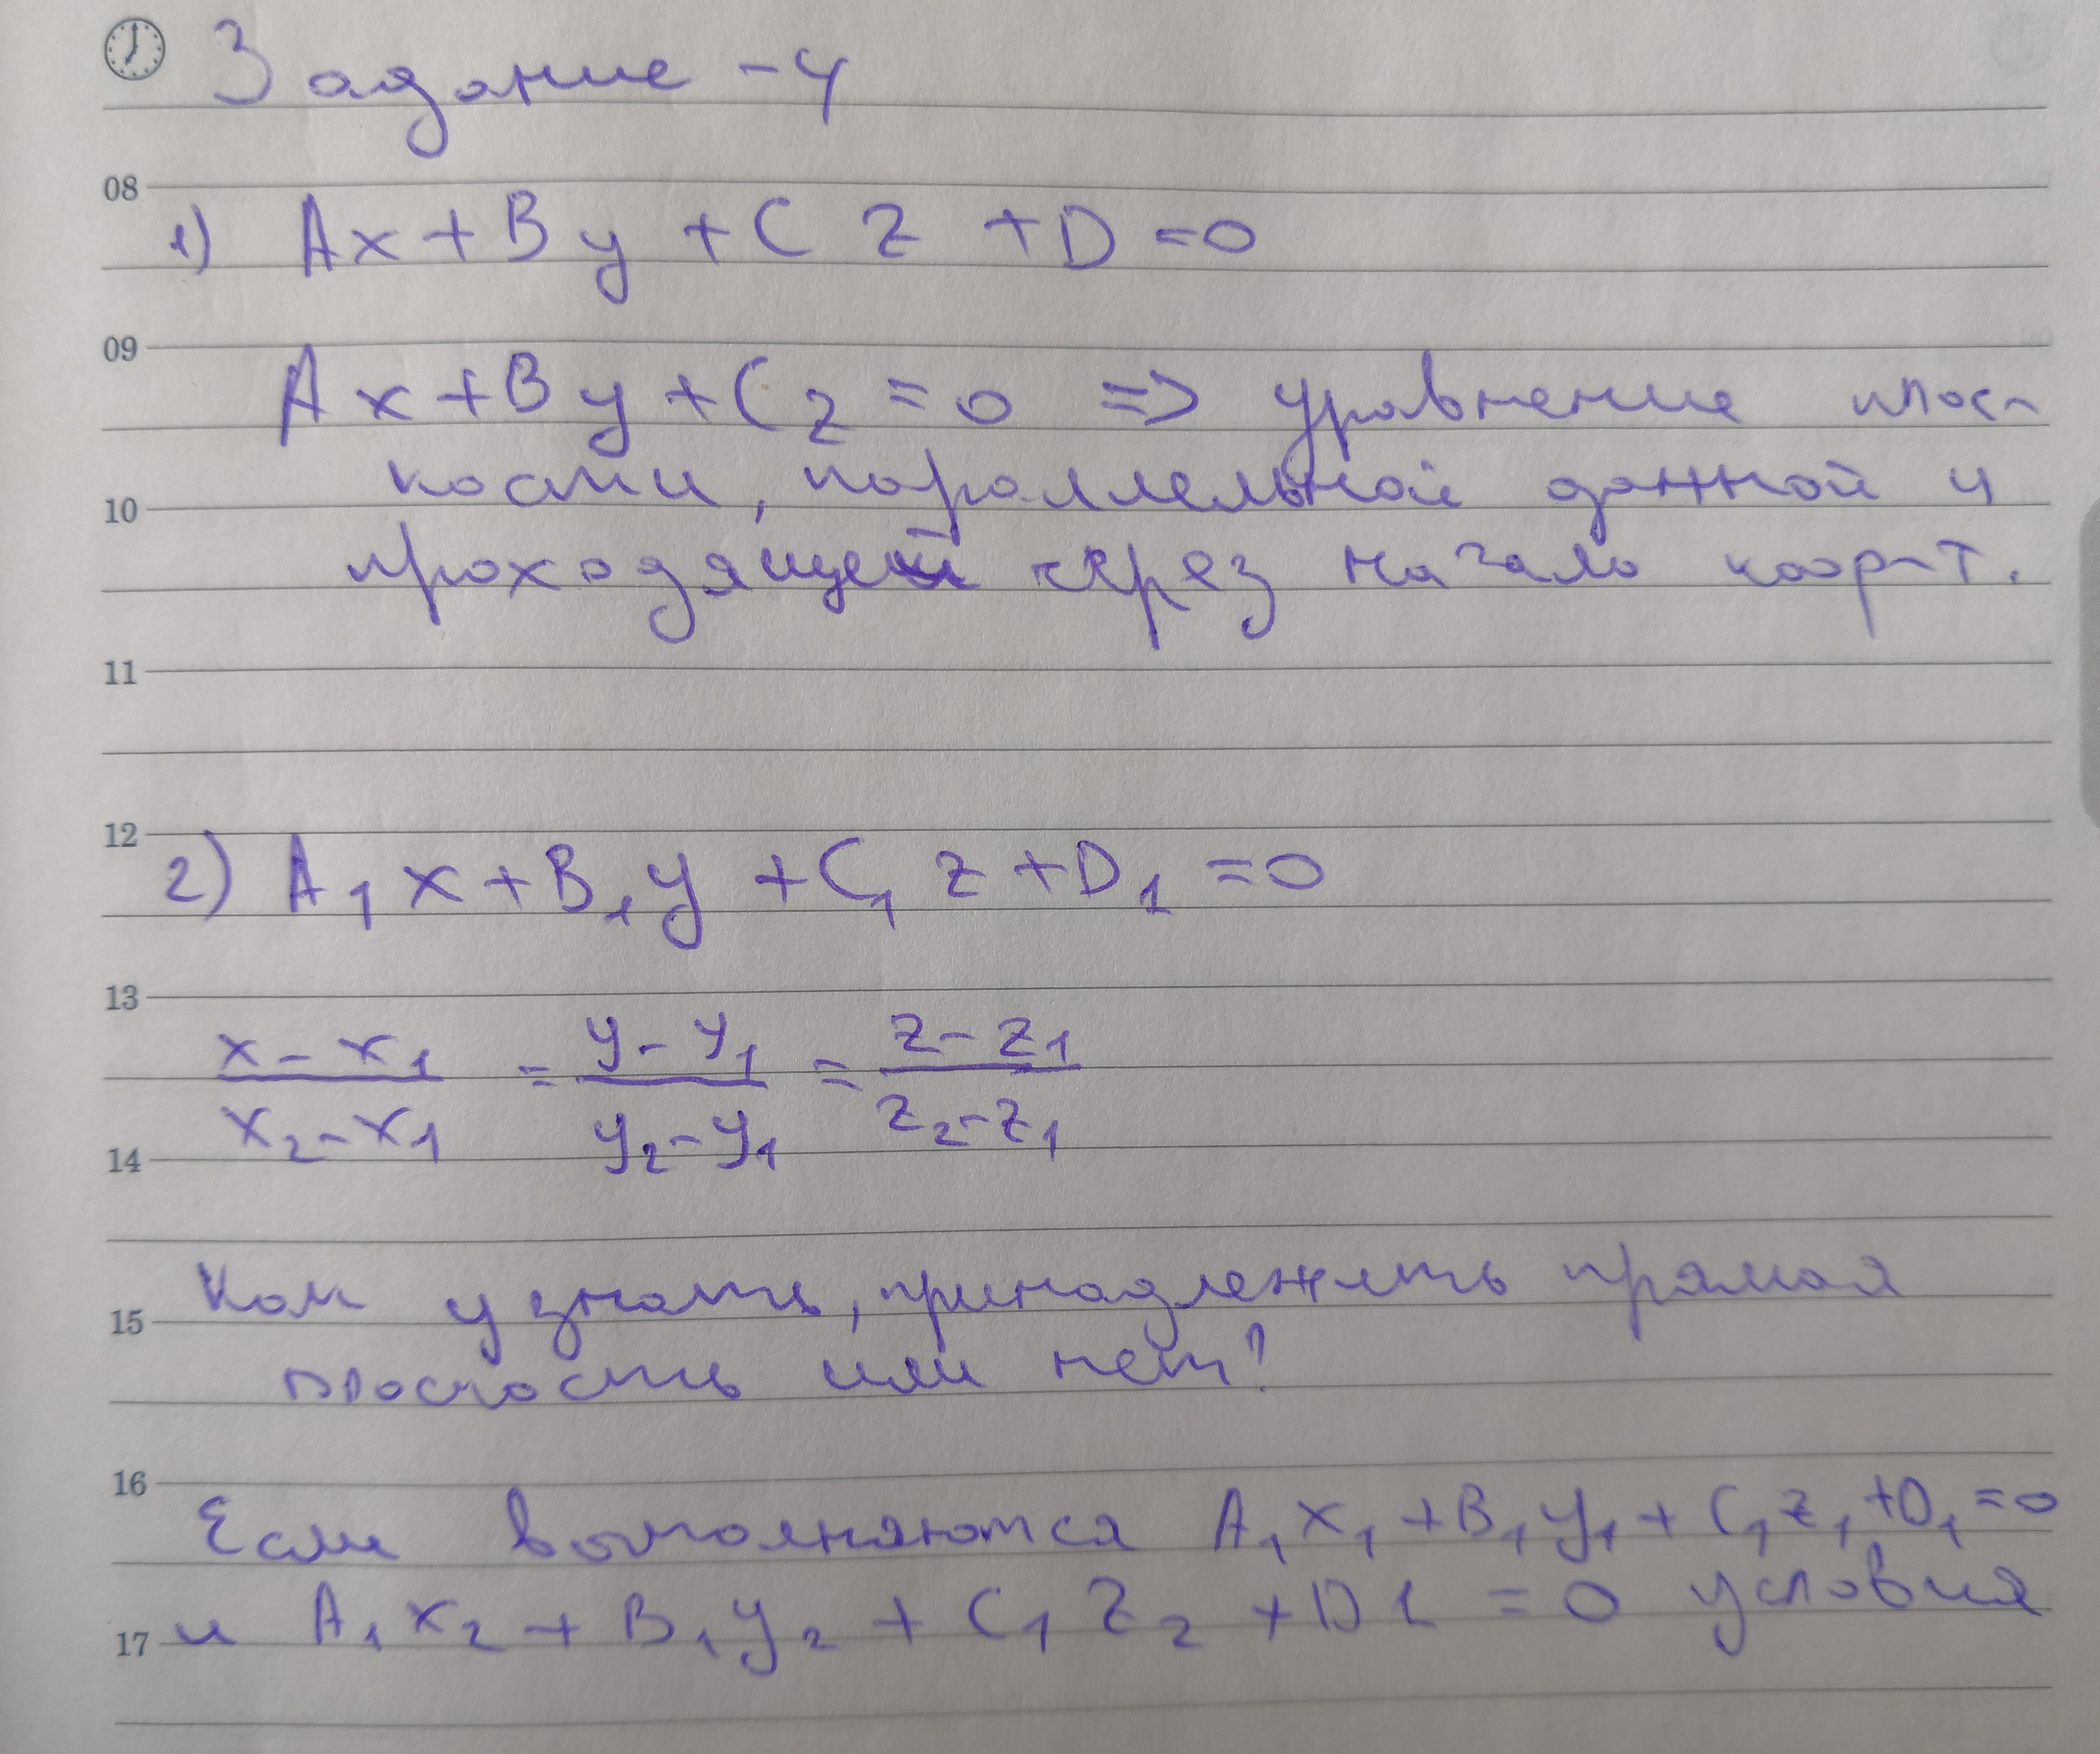 Задание -4
08
1) Ax + By + Cz + D = 0
09
Ax + By + Cz = 0 => уравнение плос-
кости, параллельной данной и
10
проходящей через начало коорт.
11
12
2) A₁x + B₁y + C₁z + D₁ = 0
13
x - x₁ / x₂ - x₁ = y - y₁ / y₂ - y₁ = z - z₁ / z₂ - z₁
14
Как узнать, принадлежить прямая
15
плоскость или нет?
16
Если выполняются A₁x₁ + B₁y₁ + C₁z₁ + D₁ = 0
17 и A₁x₂ + B₁y₂ + C₁z₂ + D1 = 0 условия